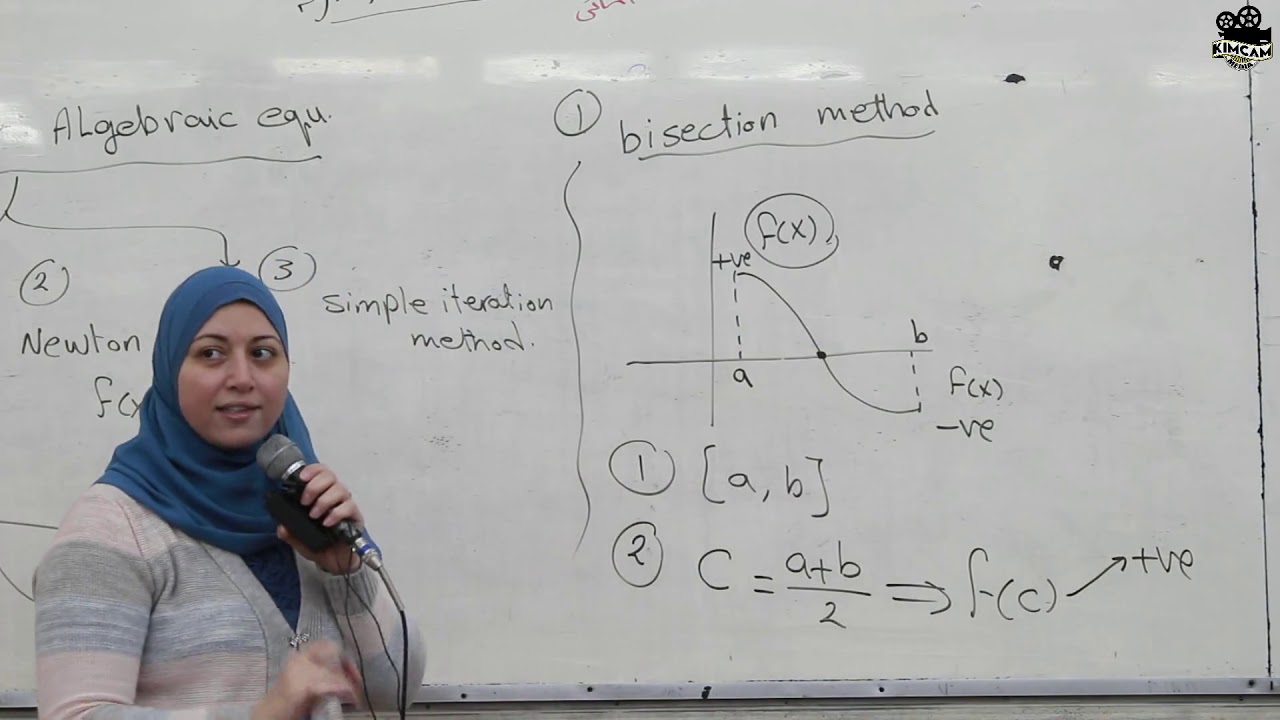 ALgebraic equ.
②
Newton
f(x
③
simple iteration
method.
① bisection method
f(x)
+ve
a
b
f(x)
-ve
① [a, b]
② C = a+b / 2 ⟹ f(c) ↗ +ve
KIMCAM